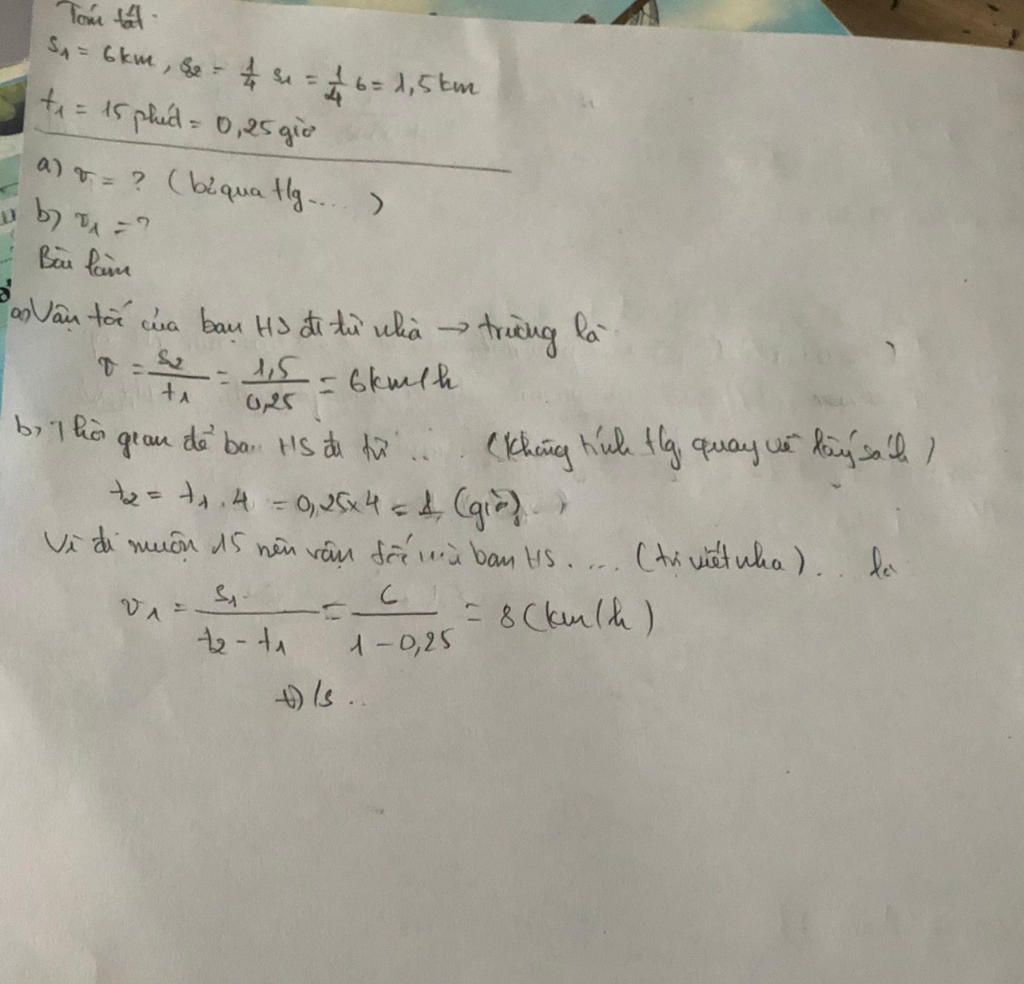 Tóm tắt:
S₁ = 6km, S₂ = 1/4 S₁ = 1/4 6 = 1,5 km
t₁ = 15 phút = 0,25 giờ
a) v = ? (bỏ qua tlg.....)
b) v₁ = ?
Bài làm
a) Vận tốc của bạn HS đi từ nhà → trường là
v = S₂/t₁ = 1,5/0,25 = 6km/h
b, Thời gian để bạn HS đi từ ... (không tính tlg quay về lấy sách)
t₂ = t₁ . 4 = 0,25x4 = 1 (giờ)
Vì đi muộn 15 nên vận tốc mà bạn HS .... (tự viết nha) .. là
v₁ = S₁/(t₂ - t₁) = 6/(1 - 0,25) = 8 (km/h)
Đ/s ..